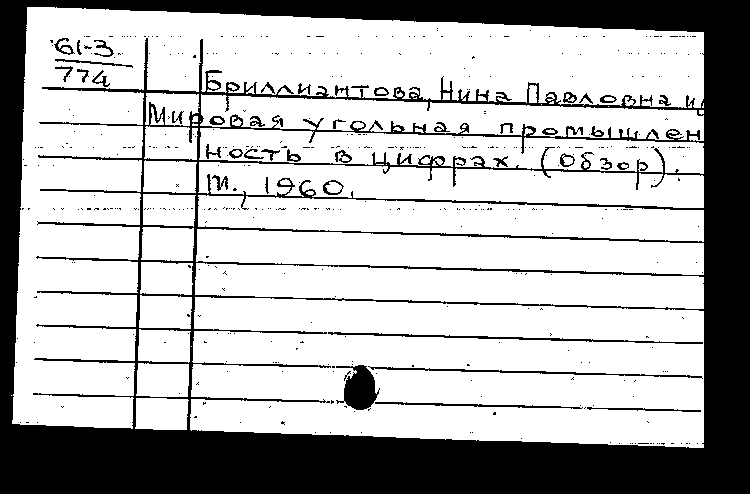 61-3
774
Бриллиантова, Нина Павловна и
Мировая угольная промышлен
ность в цифрах. (Обзор).
М., 1960.